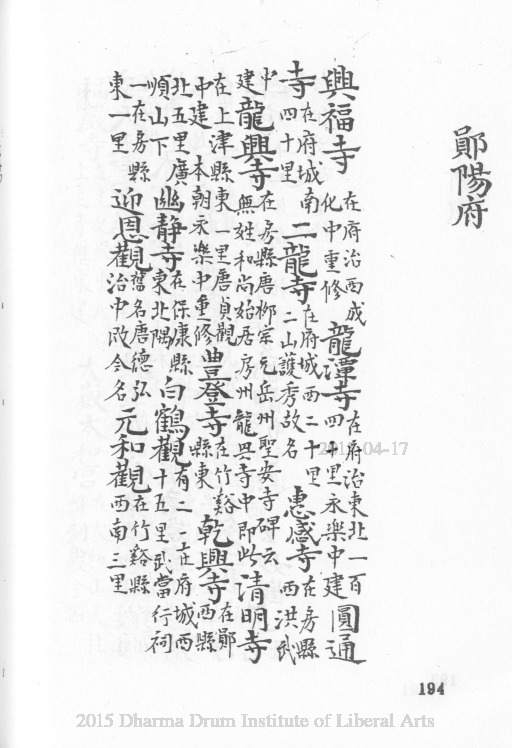 鄖陽府
興福寺在府治西成化中重修龍潭寺在府治東北一百四十里永樂中建圓通
寺在府城南四十里二龍寺在府城西二十里二山護秀故名惠感寺在房縣西洪武
中建龍興寺在房縣唐柳宗元岳州聖安寺碑云無姓和尚始居房州龍興寺中即此清明寺
在上津縣東一里唐貞觀中建 本朝永樂中重修豊登寺在竹谿縣東乾興寺在鄖西縣
北五里廣順山下幽靜寺在保康縣東北隅白鶴觀有二一在府城西十五里武當行祠
一在房縣東一里迎恩觀舊名唐德弘治中改今名元和觀在竹谿縣西南三里
04-17
194
2015 Dharma Drum Institute of Liberal Arts